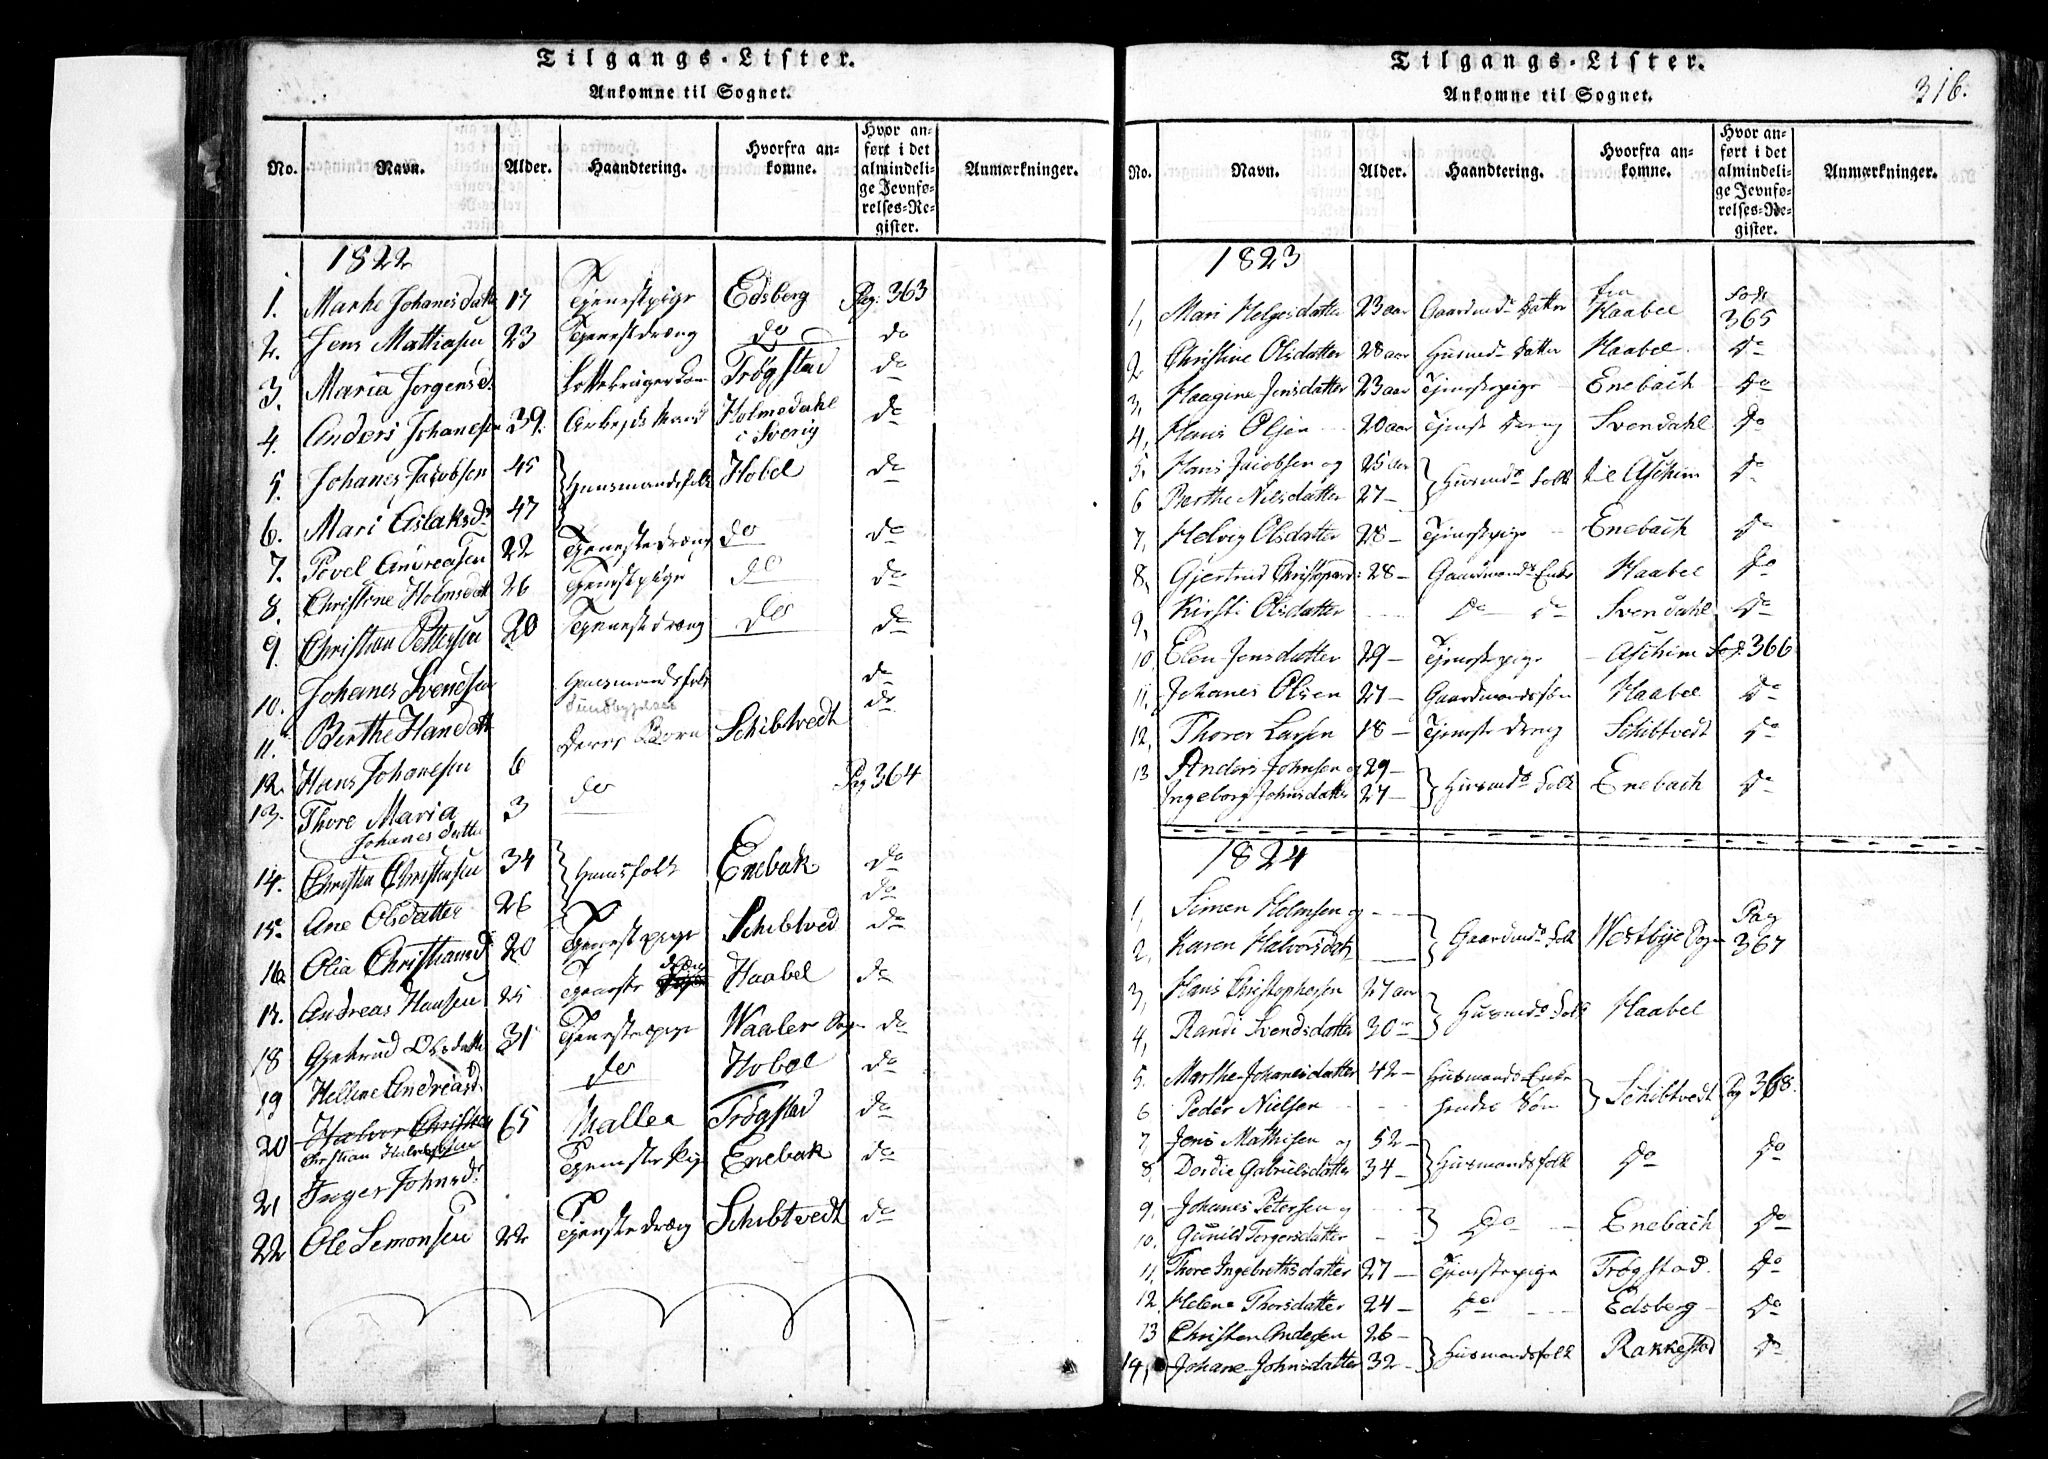 Tilgangs-Lister.
Ankomne til Sognet.
No. Navn. Alder. Haandtering. Hvorfra ankomne. Hvor anført i det almindelige Jevnførelses-Register. Anmærkninger.
1822
1. Marthe Johanesdatter 17 Tjenestpige Edsberg Pag: 363
2. Jens Mathiasen 23 Tjenestdræng do do
3. Maria Jorgensd. Trögstad do
4. Anders Johanesen 39. Arbejdsmand Holmedahl i Sverig do
5. Johanes Jacobsen 45 Huusmandsfolk Hobel do
6. Mari Aslaksdr 47
7. Povel Andreasen 22 Tjenestedræng do do
8. Christine Holmsdatt 26 Tjenestpige do do
9. Christian Pettersen 20 Tjenestdræng do do
10. Johanes Svendsen Huusmandsfolk do
11. Berthe Hansdatt Schibtvedt do
Deres Børn
12. Hans Johanesen 6 Pag 364
13. Thore Maria Johanesdatter 3 do
14. Christen Christensen 34 Huusfolk Enebak do
15. Ane Olsdatter 26 do
16. Olia Christiansd 20 Tjenestpige Schibtved do
17. Andreas Hansen 25 Tjeneste dræng Haabel do
18 Gjertrud Olsdatter 31 Tjenestepige Waaler do
19 Hellene Andreasd. do Hobøl do
20 Halvor Christen
Christian Halvorsen 65 Trögstad do
21 Inger Johnsd. Tjenestepige Enebak do
22 Ole Semonsen 22 Tjenstedræng Schibtvedt do
Tilgangs-Lister.
Ankomne til Sognet.
316.
No. Navn. Alder. Haandtering. Hvorfra ankomne. Hvor anført i det almindelige Jevnførelses-Register. Anmærkninger.
1823
1, Mari Helgesdatter 23 aar Gaardmds Datter fra Haabel 365
2 Christine Olsdatter 28 aar Husmds Datter Haabel Do
3, Haagine Jensdatter 23 aar Tjenestepige Enebach Do
4, Hans Olsen 20 aar Tjenste Dreng Svendahl Do
5. Hans Jacobsen og 25 aar Husmds Folk til Aschim Do
6 Berthe Nilsdatter 27
7, Helvig Olsdatter 28 Tjenstpige Enebach Do
8, Gjertrud Christophersd: 28 Gaardmands Enke Haabel Do
9, Kirsti Olsdatter Do Do Svendahl Do
10. Elen Jensdatter 29 Tjenstepige Aschim 366
11. Johanes Olsen 27 Gaardmandssøn Haabel Do
12, Thorer Larsen 18 Tjenste Dreng Schibtvedt Do
13 Anders Johnsen og 29 Husmds Folk Enebach Do
Ingeborg Johnsdatter 27
1824
1, Simen Holmsen og Gaardmds Folk Westbye Pag 367
2, Karen Halvorsdatr
3, Hans Christophersen 27 aar Husmds Folk Haabel
4, Randi Svendsdatter 30
5. Marthe Johanesdatter 42 Husmands Enke Schibtvedt Pag 368.
6 Peder Nielsen hendes Søn
7 Jens Mathisen og 52 Husmandsfolk Do Do
8. Dordie Gabrielsdatter 34
9. Johanes Petersen og Do Enebach Do
10. Gunild Torgersdatter
11. Thore Ingebrethsdatter 27 Tjenstepige Trögstad Do
12. Helene Thorsdatter 24 Do Edsberg Do
13 Christen Andersen 26 Husmandsfolk Rakkestad Do
14, Johane Johnsdatter 32